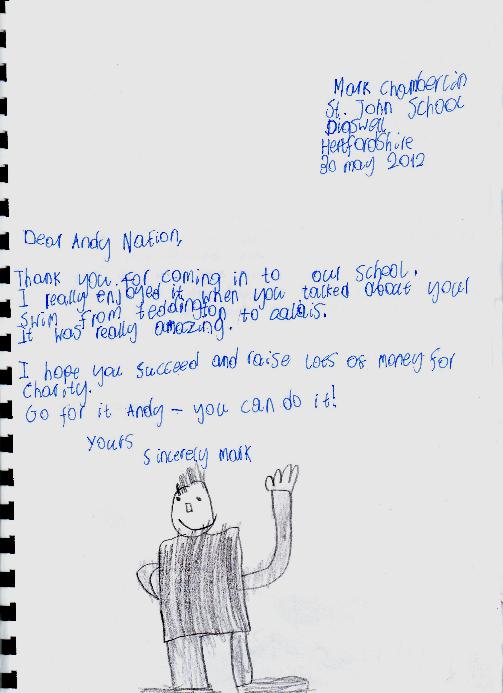 Mark Chamberlin
St. John School
Digswell
Hertfordshire
30 may 2012
Dear Andy Nation,
Thank you for coming in to our school.
I really enjoyed it when you talked about your
swim from teddington to calais.
It was really amazing.
I hope you succeed and raise lots of money for
charity.
Go for it Andy - you can do it!
yours
sincerely mark